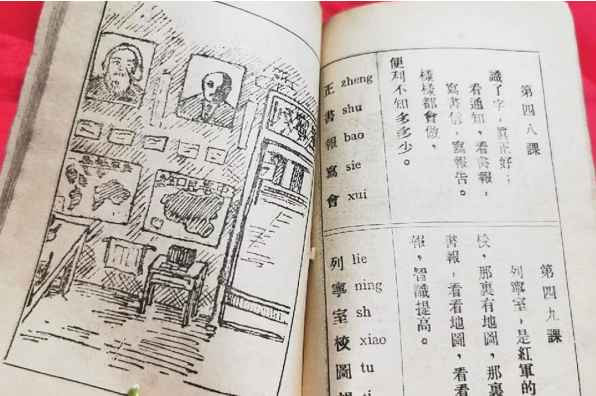 第四八課
識了字，眞正好；
看通知，看書報，
寫書信，寫報告。
樣樣都會做，
便利不知多多少。
正 zheng
書 shu
報 bao
寫 sie
會 xui
第四九課
列寧室，是紅軍的
校，那裏有地圖，那裏
書報，看看地圖，看看
報，智識提高。
列 lie
寧 ning
室 sh
校 xiao
圖 tu